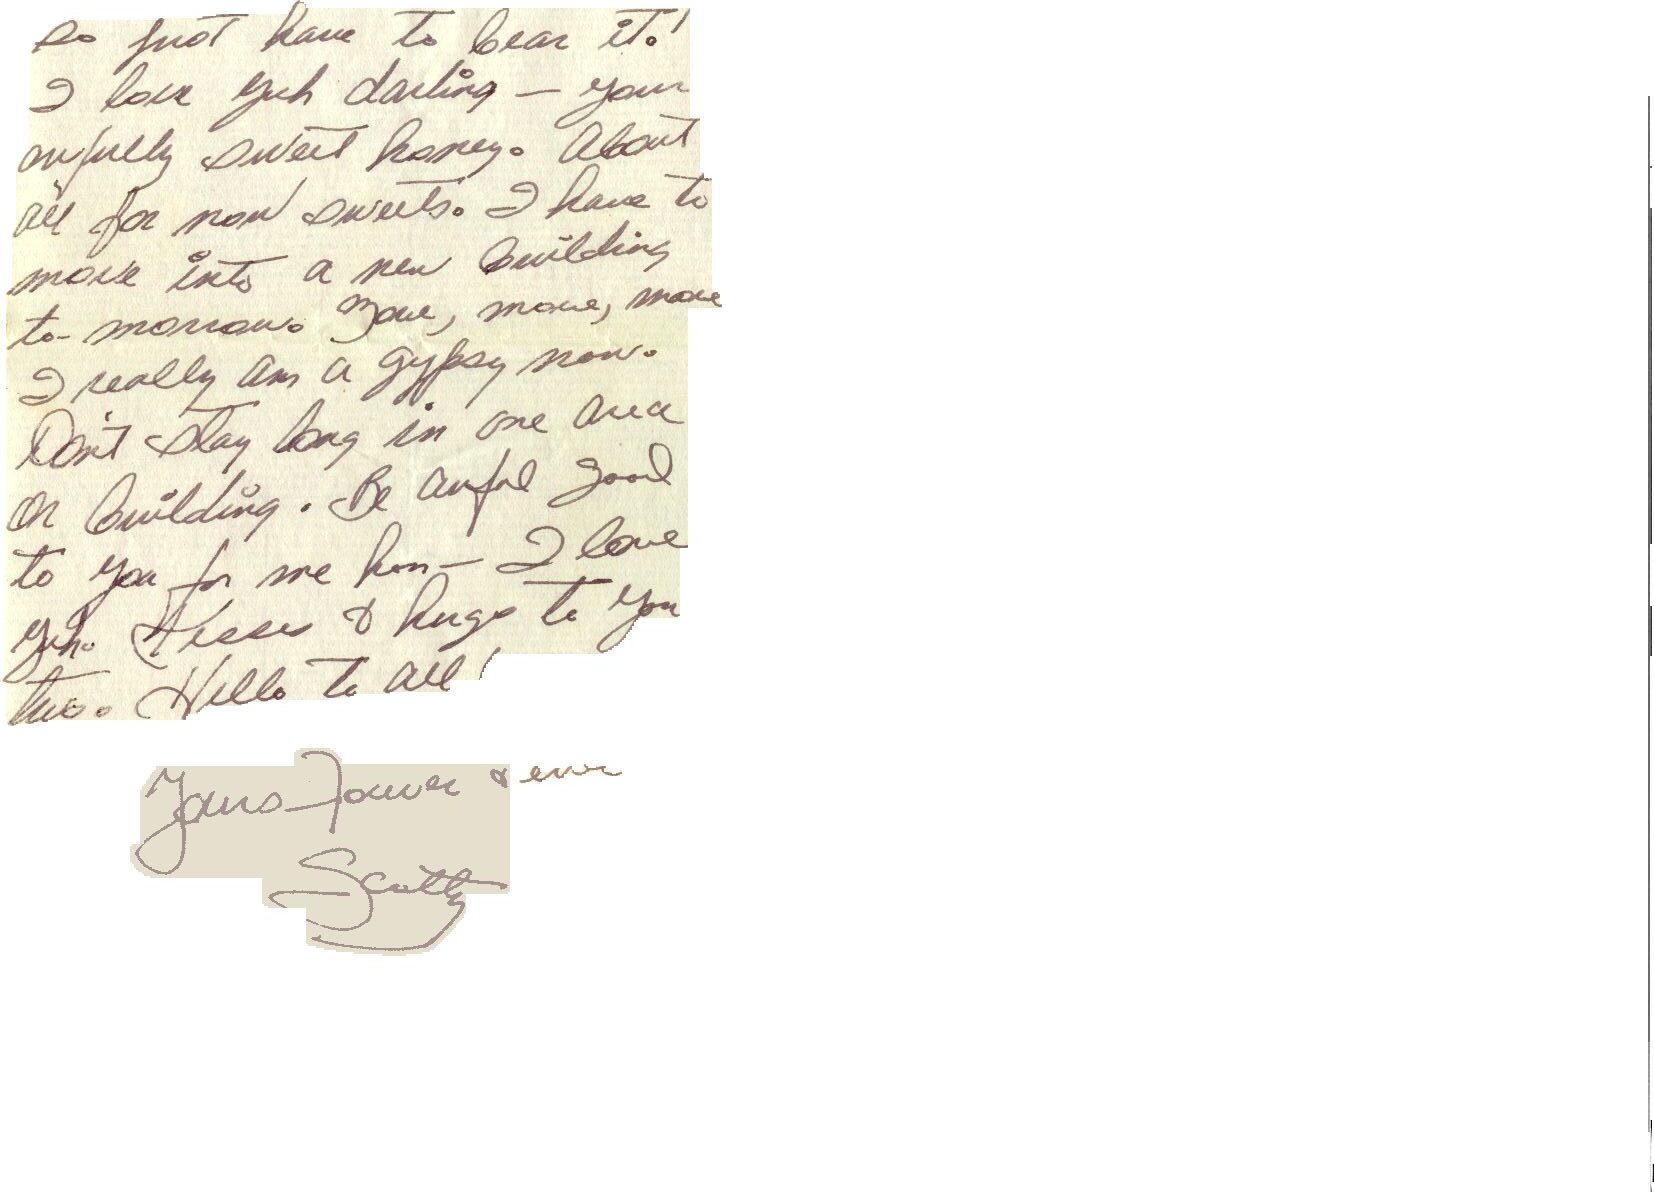 so just have to bear it!
I love yuh darling — your
awfully sweet honey. About
all for now sweets. I have to
move into a new building
to-morrow. Move, move, move
I really am a gypsy now.
Don't stay long in one area
or building. Be awful good
to you for me hon — I love
yuh. Kisses & hugs to you
two. Hello to all!
Yours Forever & ever
Scotty